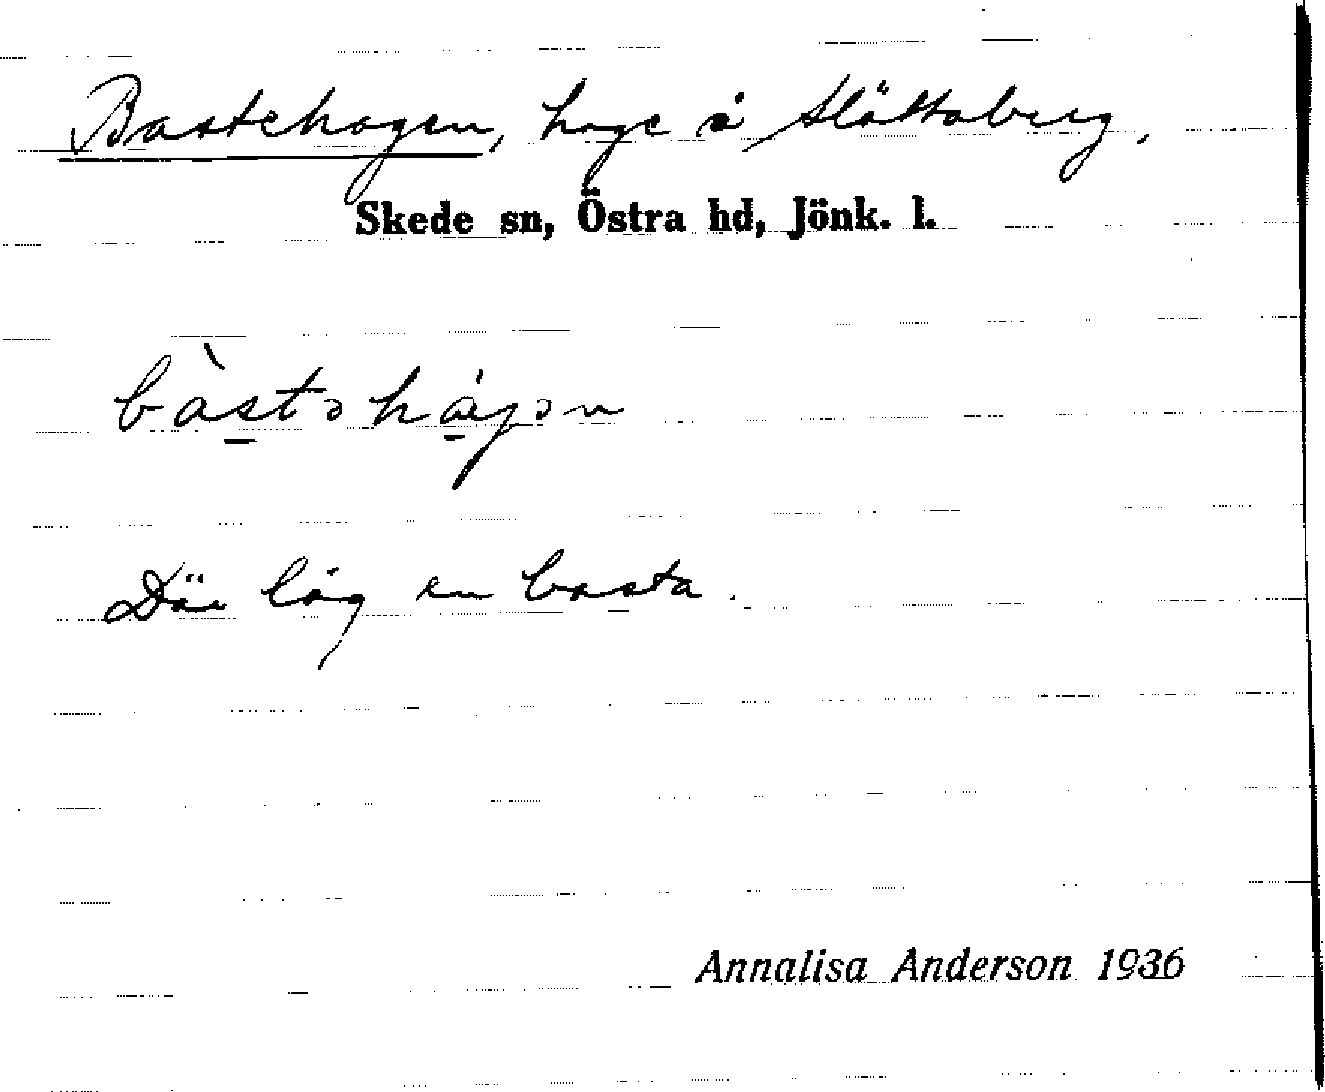 Bastehagen, hage å Slättaberg.
Skede sn, Östra hd, Jönk. l.
bàstəhágən
Där låg en basta.
Annalisa Anderson 1936